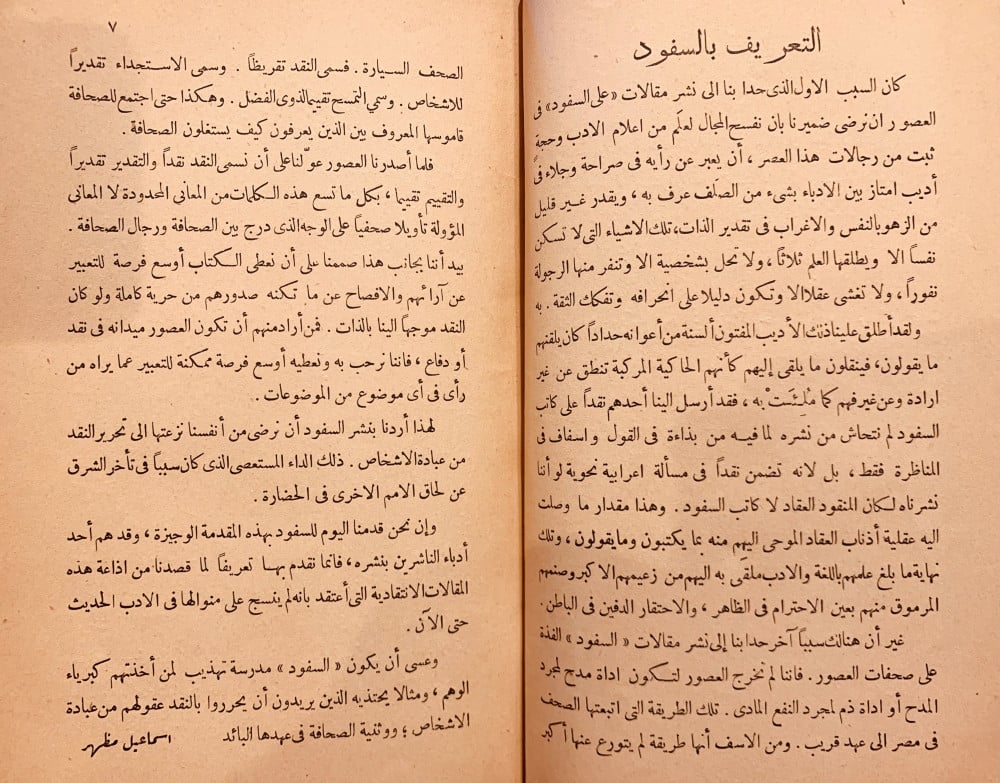 التعريف بالسفود
كان السبب الاول الذى حدا بنا الى نشر مقالات «على السفود» فى
العصور ان نرضى ضميرنا بان نفسح المجال لعلَم من اعلام الادب وحجة
ثبت من رجالات هذا العصر، أن يعبر عن رأيه فى صراحة وجلاء فى
أديب امتاز بين الادباء بشىء من الصلف عرف به، ويقدر غير قليل
من الزهو بالنفس والاغراب فى تقدير الذات، تلك الاشياء التى لا تسكن
نفساً الا ويطلقها العلم ثلاثاً، ولا تحل بشخصية الا وتنفر منها الرجولة
نفوراً، ولا تغشى عقلا الا وتكون دليلا على انحرافه وتفكك الثقة. به
ولقد أطلق علينا ذلك الأديب المفتون ألسنة من أعوانه حداداً كان يلقنهم
ما يقولون، فينقلون ما يلقى إليهم كأنهم الحاكية المركبة تنطق عن غير
ارادة وعن غير فهم كما مُلِئَتْ به، فقد أرسل الينا أحدهم نقداً على كاتب
السفود لم نتحاش من نشره لما فيه من بذاءة فى القول واسفاف فى
المناظرة فقط، بل لانه تضمن نقداً فى مسألة اعرابية نحوية لو أننا
نشرناه لكان المنقود العقاد لا كاتب السفود. وهذا مقدار ما وصلت
اليه عقلية أذناب العقاد الموحى اليهم منه بما يكتبون وما يقولون، وتلك
نهاية ما بلغ علمهم باللغة والادب ملقى به اليهم من زعيمهم الاكبر وصنمهم
المرموق منهم بعين الاحترام فى الظاهر، والاحتقار الدفين فى الباطن.
غير أن هنالك سبباً آخر حدا بنا إلى نشر مقالات «السفود» الفذة
على صفحات العصور. فاننا لم نخرج العصور لتكون اداة مدح لمجرد
المدح أو اداة ذم لمجرد النفع المادى. تلك الطريقة التى اتبعتها الصحف
فى مصر الى عهد قريب. ومن الاسف أنها طريقة لم يتورع عنها أكبر
٧
الصحف السيارة. فسمى النقد تقريظاً. وسمى الاستجداء تقديراً
للاشخاص. وسمي التمسح تقييما لذوى الفضل. وهكذا حتى اجتمع للصحافة
قاموسها المعروف بين الذين يعرفون كيف يستغلون الصحافة.
فلما أصدرنا العصور عوّلنا على أن نسمى النقد نقداً والتقدير تقديراً
والتقييم تقييما، بكل ما تسع هذه الكلمات من المعانى المحدودة لا المعانى
المؤولة تأويلا صحفياً على الوجه الذى درج بين الصحافة ورجال الصحافة.
بيد أننا بجانب هذا صممنا على أن نعطى الكتاب أوسع فرصة للتعبير
عن آرائهم والافصاح عن ما تكنه صدورهم من حرية كاملة ولو كان
النقد موجهاً الينا بالذات. فمن أراد منهم أن تكون العصور ميدانه فى نقد
أو دفاع، فاننا نرحب به ونعطيه أوسع فرصة ممكنة للتعبير عما يراه من
رأى فى أى موضوع من الموضوعات.
لهذا أردنا بنشر السفود أن نرضى من أنفسنا نزعتها الى تحرير النقد
من عبادة الاشخاص. ذلك الداء المستعصى الذى كان سبباً فى تأخر الشرق
عن لحاق الامم الاخرى فى الحضارة.
وإن نحن قدمنا اليوم للسفود بهذه المقدمة الوجيزة، وقد هم أحد
أدباء الناشرين بنشره، فانما نقدم بها تعريفاً لما قصدنا من اذاعة هذه
المقالات الانتقادية التى أعتقد بانه لم ينسج على منوالها فى الادب الحديث
حتى الآن.
وعسى أن يكون «السفود» مدرسة تهذيب لمن أخذتهم كبرياء
الوهم، ومثالا يحتذيه الذين يريدون أن يحرروا بالنقد عقولهم من عبادة
الاشخاص؛ ووثنية الصحافة فى عهدها البائد
اسماعيل مظهر